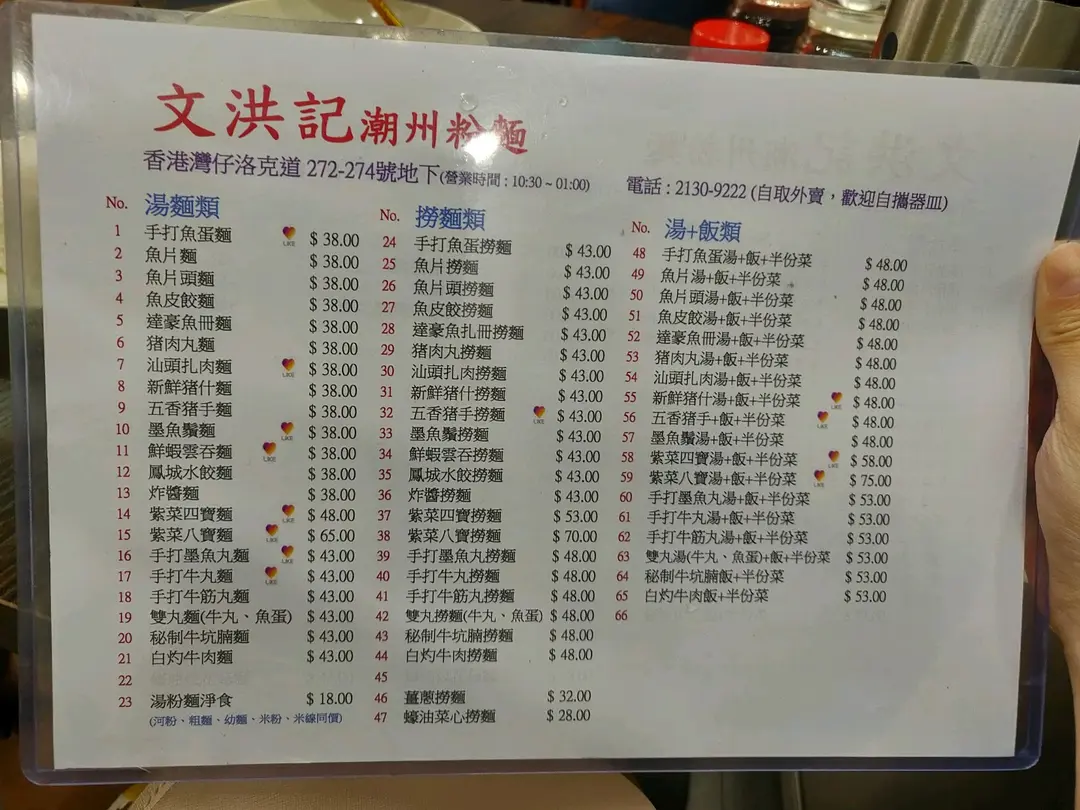 文洪記潮州粉麵
香港灣仔洛克道 272-274號地下(營業時間 : 10:30 ~ 01:00)
電話 : 2130-9222 (自取外賣，歡迎自攜器皿)
No. 湯麵類
1 手打魚蛋麵 LIKE $ 38.00
2 魚片麵 $ 38.00
3 魚片頭麵 $ 38.00
4 魚皮餃麵 $ 38.00
5 達豪魚冊麵 $ 38.00
6 猪肉丸麵 $ 38.00
7 汕頭扎肉麵 LIKE $ 38.00
8 新鮮猪什麵 $ 38.00
9 五香猪手麵 $ 38.00
10 墨魚鬚麵 LIKE $ 38.00
11 鮮蝦雲吞麵 LIKE $ 38.00
12 鳳城水餃麵 $ 38.00
13 炸醬麵 $ 38.00
14 紫菜四寶麵 LIKE $ 48.00
15 紫菜八寶麵 LIKE $ 65.00
16 手打墨魚丸麵 LIKE $ 43.00
17 手打牛丸麵 LIKE $ 43.00
18 手打牛筋丸麵 $ 43.00
19 雙丸麵(牛丸、魚蛋) $ 43.00
20 秘制牛坑腩麵 $ 43.00
21 白灼牛肉麵 $ 43.00
22
23 湯粉麵淨食 $ 18.00
(河粉、粗麵、幼麵、米粉、米線同價)
No. 撈麵類
24 手打魚蛋撈麵 $ 43.00
25 魚片撈麵 $ 43.00
26 魚片頭撈麵 $ 43.00
27 魚皮餃撈麵 $ 43.00
28 達豪魚扎冊撈麵 $ 43.00
29 猪肉丸撈麵 $ 43.00
30 汕頭扎肉撈麵 $ 43.00
31 新鮮猪什撈麵 $ 43.00
32 五香猪手撈麵 LIKE $ 43.00
33 墨魚鬚撈麵 $ 43.00
34 鮮蝦雲吞撈麵 $ 43.00
35 鳳城水餃撈麵 $ 43.00
36 炸醬撈麵 $ 43.00
37 紫菜四寶撈麵 $ 53.00
38 紫菜八寶撈麵 $ 70.00
39 手打墨魚丸撈麵 $ 48.00
40 手打牛丸撈麵 $ 48.00
41 手打牛筋丸撈麵 $ 48.00
42 雙丸撈麵(牛丸、魚蛋) $ 48.00
43 秘制牛坑腩撈麵 $ 48.00
44 白灼牛肉撈麵 $ 48.00
45
46 薑蔥撈麵 $ 32.00
47 蠔油菜心撈麵 $ 28.00
No. 湯+飯類
48 手打魚蛋湯+飯+半份菜 $ 48.00
49 魚片湯+飯+半份菜 $ 48.00
50 魚片頭湯+飯+半份菜 $ 48.00
51 魚皮餃湯+飯+半份菜 $ 48.00
52 達豪魚冊湯+飯+半份菜 $ 48.00
53 猪肉丸湯+飯+半份菜 $ 48.00
54 汕頭扎肉湯+飯+半份菜 $ 48.00
55 新鮮猪什湯+飯+半份菜 LIKE $ 48.00
56 五香猪手+飯+半份菜 LIKE $ 48.00
57 墨魚鬚湯+飯+半份菜 $ 48.00
58 紫菜四寶湯+飯+半份菜 LIKE $ 58.00
59 紫菜八寶湯+飯+半份菜 LIKE $ 75.00
60 手打墨魚丸湯+飯+半份菜 $ 53.00
61 手打牛丸湯+飯+半份菜 $ 53.00
62 手打牛筋丸湯+飯+半份菜 $ 53.00
63 雙丸湯(牛丸、魚蛋)+飯+半份菜 $ 53.00
64 秘制牛坑腩飯+半份菜 $ 53.00
65 白灼牛肉飯+半份菜 $ 53.00
66